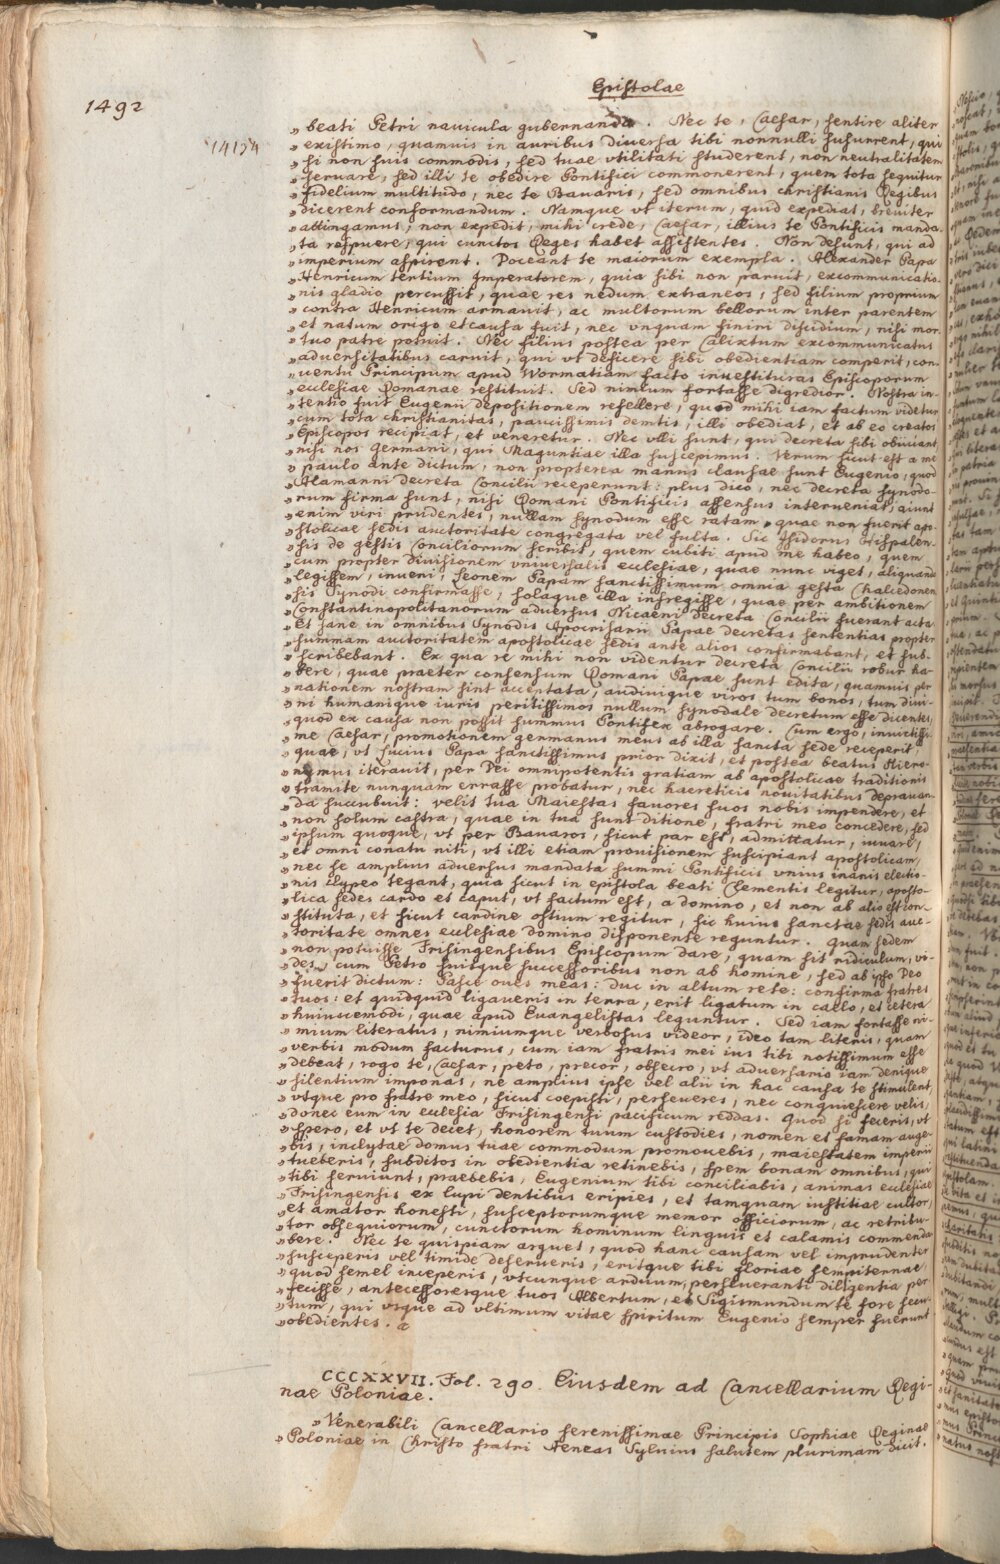 Epistolae
1492
14134
„ beati Petri navicula gubernanda. Nec te, Caesar, sentire aliter
„ existimo, quamuis in auribus diuersa tibi nonnulli susurrent, qui
„ si non suis commodis, sed tuae vtilitati studerent, non neutralitatem
„ seruare, sed illi te obedire Pontifici commonerent, quem tota sequitur
„ fidelium multitudo, nec te Bauaris, sed omnibus christianis Regibus
„ dicerent conformandum. Namque vt iterum, quid expediat, breuiter
„ attingamus, non expedit, mihi crede, Caesar, illius te Pontificis manda-
„ ta respuere, qui cunctos Reges habet assistentes. Non desunt, qui ad
„ imperium aspirent. Doceant te maiorum exempla. Alexander Papa
„ Henricum tertium Imperatorem, quia sibi non paruit, excommunicatio-
„ nis gladio percussit, quae res nedum extraneos, sed filium proprium
„ contra Henricum armauit, ac multorum bellorum inter parentem
„ et natum origo et causa fuit, nec vnquam finiri dissidium, nisi mor-
„ tuo patre potuit. Nec filius postea per Calixtum excommunicatus
„ aduersitatibus caruit, qui vt deficere sibi obedientiam comperit, con-
„ uentu Principum apud Wormatiam facto inuestituras Episcoporum
„ ecclesiae Romanae restituit. Sed nimium fortasse digredior. Nostra in-
„ tentio fuit Eugenii depositionem refellere, quod mihi iam factum videtur
„ cum tota christianitas, paucissimis demtis, illi obediat, et ab eo creatos
„ Episcopos recipiat, et veneretur. Nec vlli sunt, qui decreta sibi obiiciant
„ nisi nos Germani, qui Maguntiae illa suscepimus. Verum sicut est a me
„ paulo ante dictum, non propterea manus clausae sunt Eugenio, quod
„ Alamanni decreta Concilii receperunt: plus dico, nec decreta synodo-
„ rum firma sunt, nisi Romani Pontificis assensus interueniat, aiunt
„ enim viri prudentes, nullam synodum esse ratam, quae non fuerit apo-
„ stolicae sedis auctoritate congregata vel fulta. Sic Isidorus Hispalen-
„ sis de gestis Conciliorum scribit, quem cubiti apud me habeo, quem
„ cum propter diuisionem vniuersalis ecclesiae, quae nunc viget, aliquando
„ legissem, inueni, Leonem Papam sanctissimum omnia gesta Chalcedonen-
„ sis Synodi confirmasse, solaque illa infregisse, quae per ambitionem
„ Constantinopolitanorum aduersus Nicaeni decreta Concilii fuerant acta
„ Et sane in omnibus Synodis Apocrisarii Papae decretas sententias propter
„ summam auctoritatem apostolicae sedis ante alios confirmabant, et sub-
„ scribebant. Ex qua re mihi non videntur decreta Concilii robur ha-
„ bere, quae praeter consensum Romani Papae sunt edita, quamuis per
„ nationem nostram sint acceptata, audiuique viros tum bonos, tum diui-
„ ni humanique iuris peritissimos nullum synodale decretum esse dicentes,
„ quod ex causa non possit summus Pontifex abrogare. Cum ergo, inuictissi-
„ me Caesar, promotionem germanus meus ab illa sancta sede receperit,
„ quae, vt Lucius Papa sanctissimus prior dixit, et postea beatus Hiero-
„ nymus iterauit, per Dei omnipotentis gratiam ab apostolicae traditionis
„ tramite nunquam errasse probatur, nec haereticis nouitatibus deprauan-
„ da succubuit: velit tua Maiestas fauores suos nobis impendere, et
„ non solum castra, quae in tua sunt ditione, fratri meo concedere, sed
„ ipsum quoque, vt per Bauaros, sicut par est, admittatur, iuuare,
„ et omni conatu niti, vt illi etiam prouisionem suscipiant apostolicam,
„ nec se amplius aduersus mandata summi Pontificis vnius inanis electio-
„ nis clypeo tegant, quia sicut in epistola beati Clementis legitur, aposto-
„ lica sedes cardo et caput, vt factum est, a domino, et non ab alio est con-
„ stituta, et sicut cardine ostium regitur, sic huius sanctae sedis auc-
„ toritate omnes ecclesiae domino disponente reguntur. Quam sedem
„ non potuisse Frisingensibus Episcopum dare, quam sit ridiculum, vi-
„ des, cum Petro suisque successoribus non ab homine, sed ab ipso Deo
„ fuerit dictum: Pasce oues meas: Duc in altum rete: confirma fratres
„ tuos: et quidquid ligaueris in terra, erit ligatum in caelo, et cetera
„ huiuscemodi, quae apud Euangelistas leguntur. Sed iam fortasse ni-
„ mium literatus, nimiumque verbosus videor, ideo tam literis, quam
„ verbis modum facturus, cum iam fratris mei ius tibi notissimum esse
„ debeat, rogo te, Caesar, peto, precor, obsecro, vt aduersario iam denique
„ silentium imponas, ne amplius ipse vel alii in hac causa te stimulent,
„ vtque pro fratre meo, sicut coepisti, perseueres, nec conquiescere velis,
„ donec eum in ecclesia Frisingensi pacificum reddas. Quod si feceris, vt
„ spero, et vt te decet, honorem tuum custodies, nomen et famam auge-
„ bis, inclytae domus tuae commodum promouebis, maiestatem imperii
„ tueberis, subditos in obedientia retinebis, spem bonam omnibus, qui
„ tibi seruiunt, praebebis, Eugenium tibi conciliabis, animas ecclesiae
„ Frisingensis ex lupi dentibus eripies, et tamquam iustitiae cultor,
„ et amator honesti, susceptorumque memor officiorum, ac retribu-
„ tor obsequiorum, cunctorum hominum linguis et calamis commenda-
„ bere. Nec te quispiam arguet, quod hanc causam vel imprudenter
„ susceperis vel timide deserueris, eritque tibi gloriae sempiternae,
„ quod semel inceperis, vtcunque arduum, perseueranti diligentia per-
„ fecisse, antecessoresque tuos Albertum, et Sigismundum te fore secu-
„ tum, qui vsque ad vltimum vitae spiritum Eugenio semper fuerunt
„ obedientes.
CCCXXVII. Fol. 290. Eiusdem ad Cancellarium Regi-
nae Poloniae.
„ Venerabili Cancellario serenissimae Principis Sophiae Reginae
„ Poloniae in Christo fratri Aeneas Syluius salutem plurimam dicit.